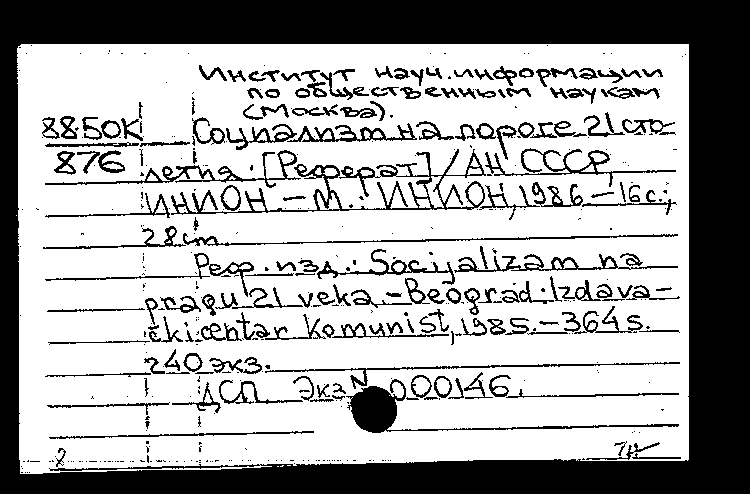 Институт науч.информации
по общественным наукам
(Москва).
88-50К Социализм на пороге 21 сто-
876 летия: [Реферат] / АН СССР,
ИНИОН. – М.: ИНИОН, 1986. – 16 с.;
28 см.
Реф. изд.: Socijalizam na
pragu 21 veka. – Beograd: Izdava-
čki centar Komunist, 1985. – 364 s.
240 экз.
ДСП. Экз N 000146.